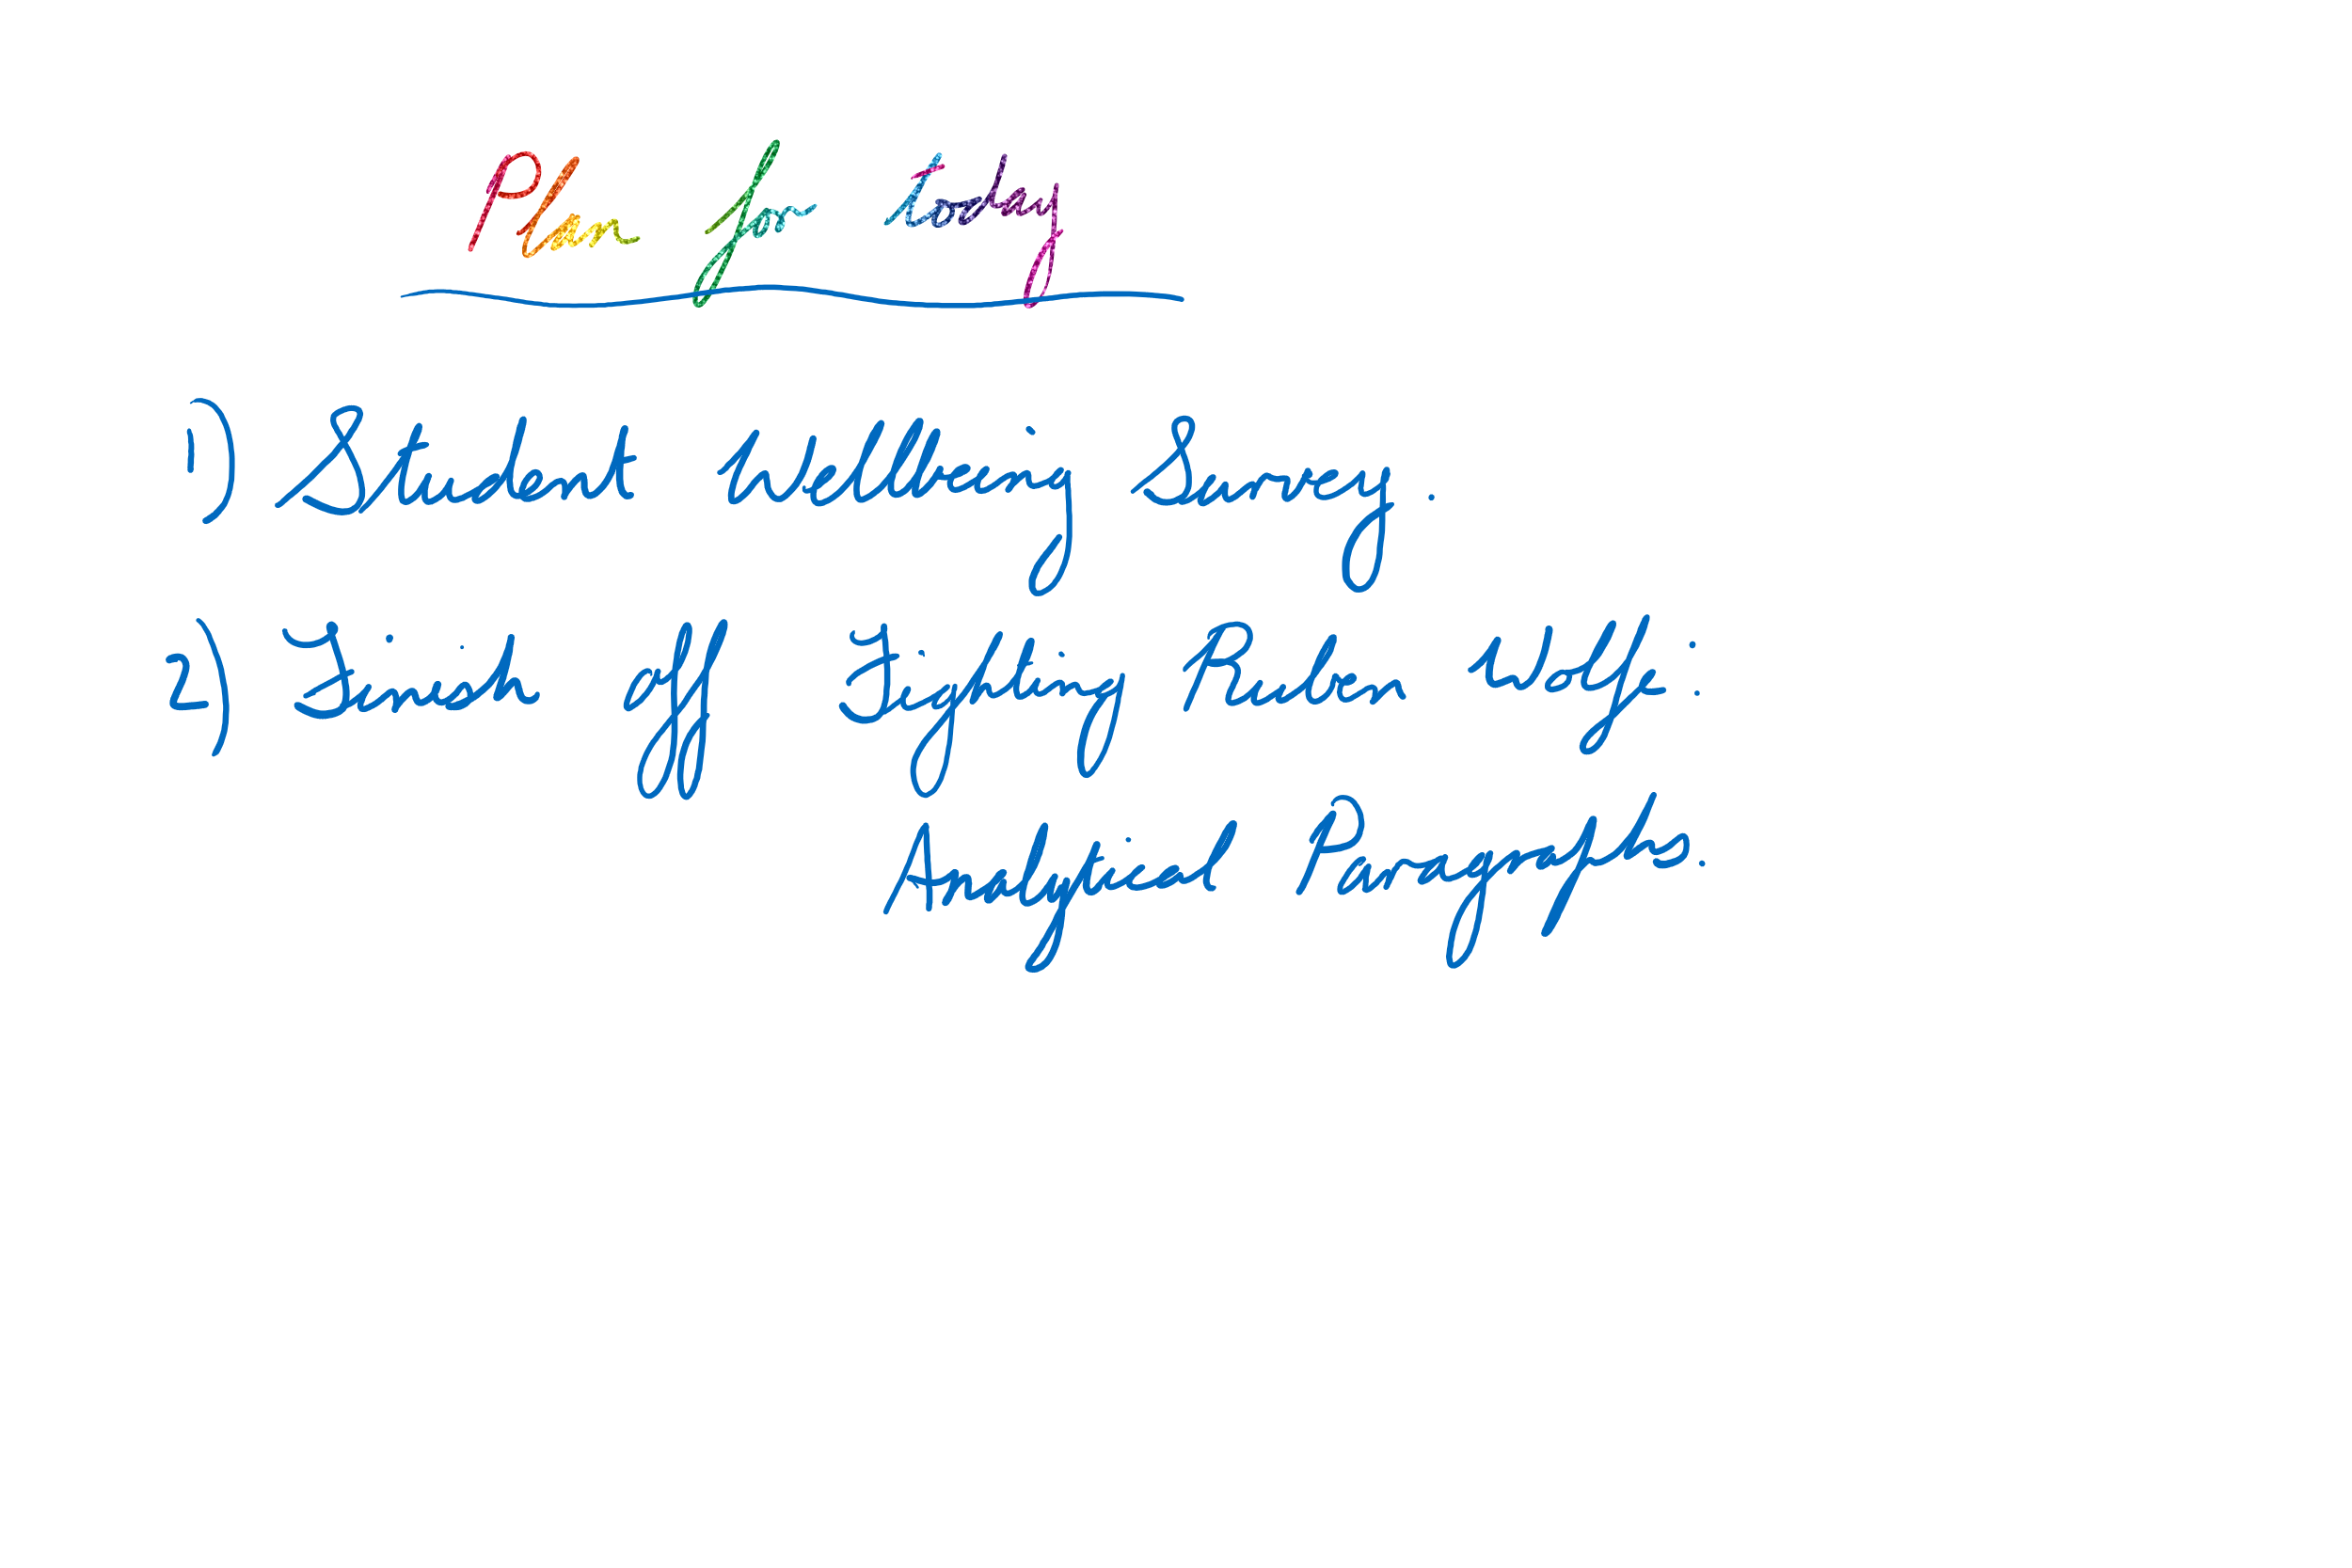 Plan for today
1) Student Wellbeing Survey.
2) Finish off Fighting Ruben Wolfe:
Analytical Paragraphs.